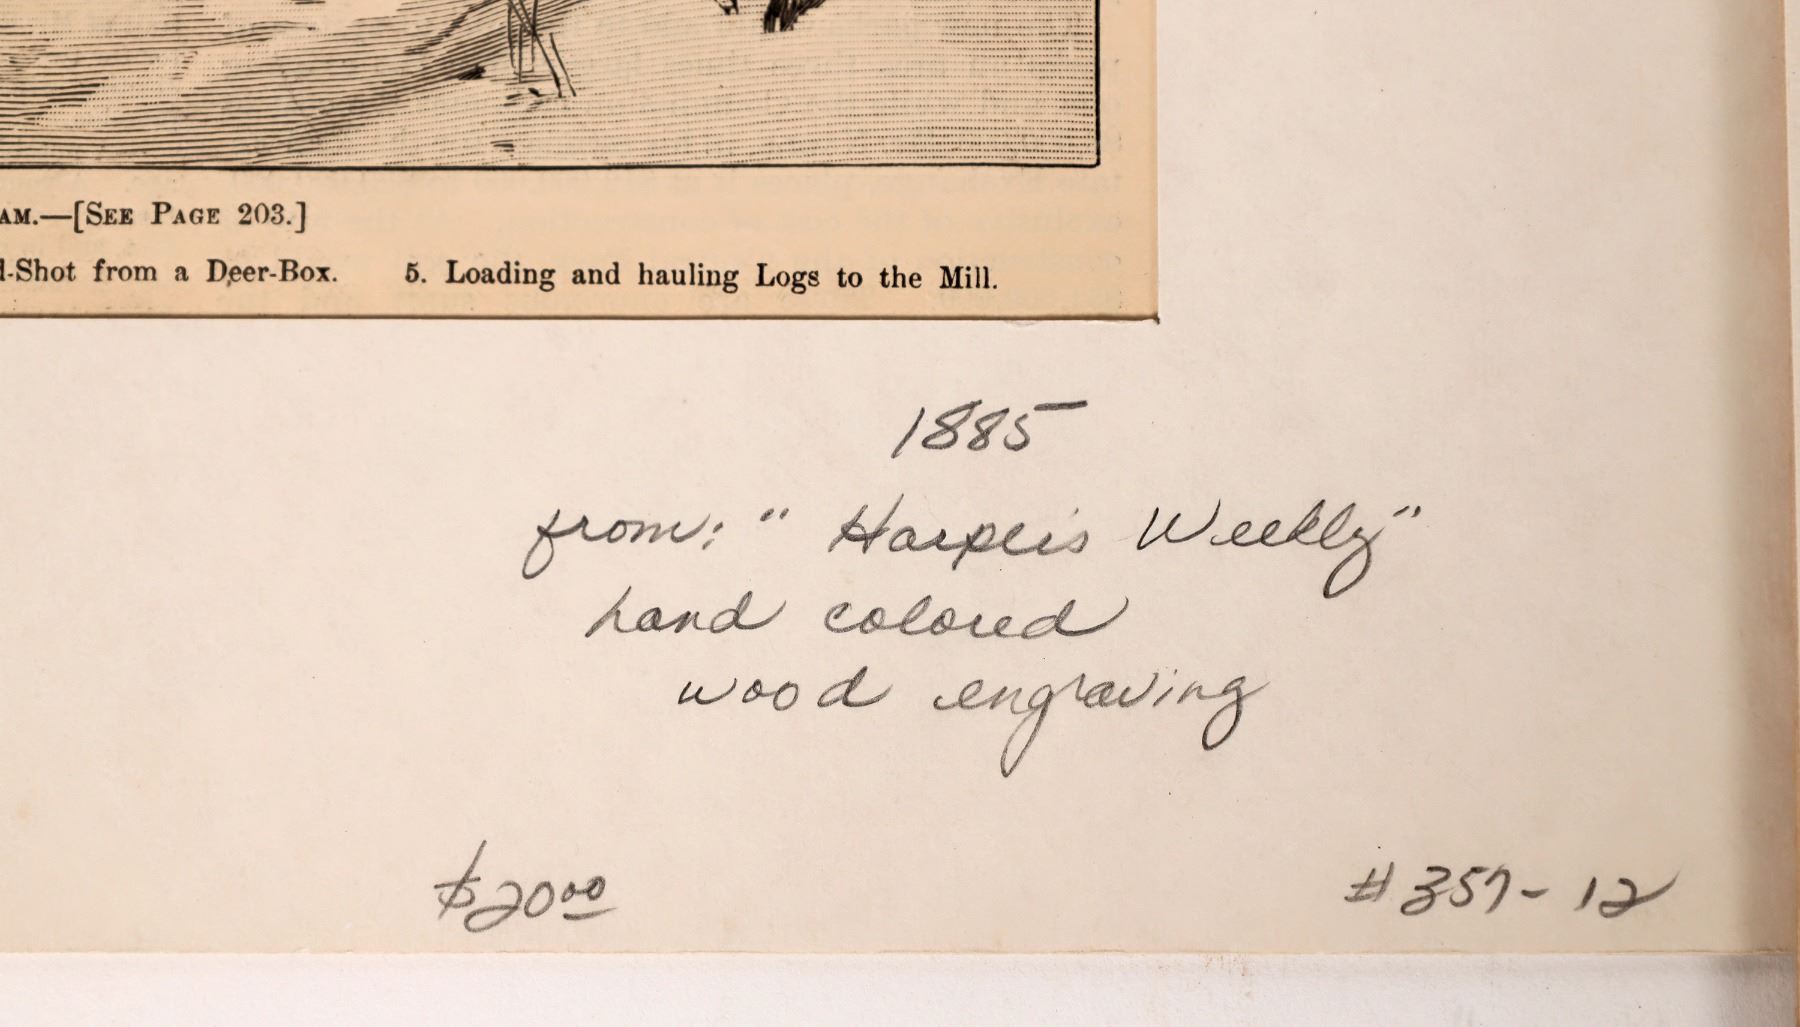 AM.—[SEE PAGE 203.]
d-Shot from a Deer-Box. 5. Loading and hauling Logs to the Mill.
1885
from: "Harper's Weekly"
hand colored
wood engraving
$20.00 #357-12